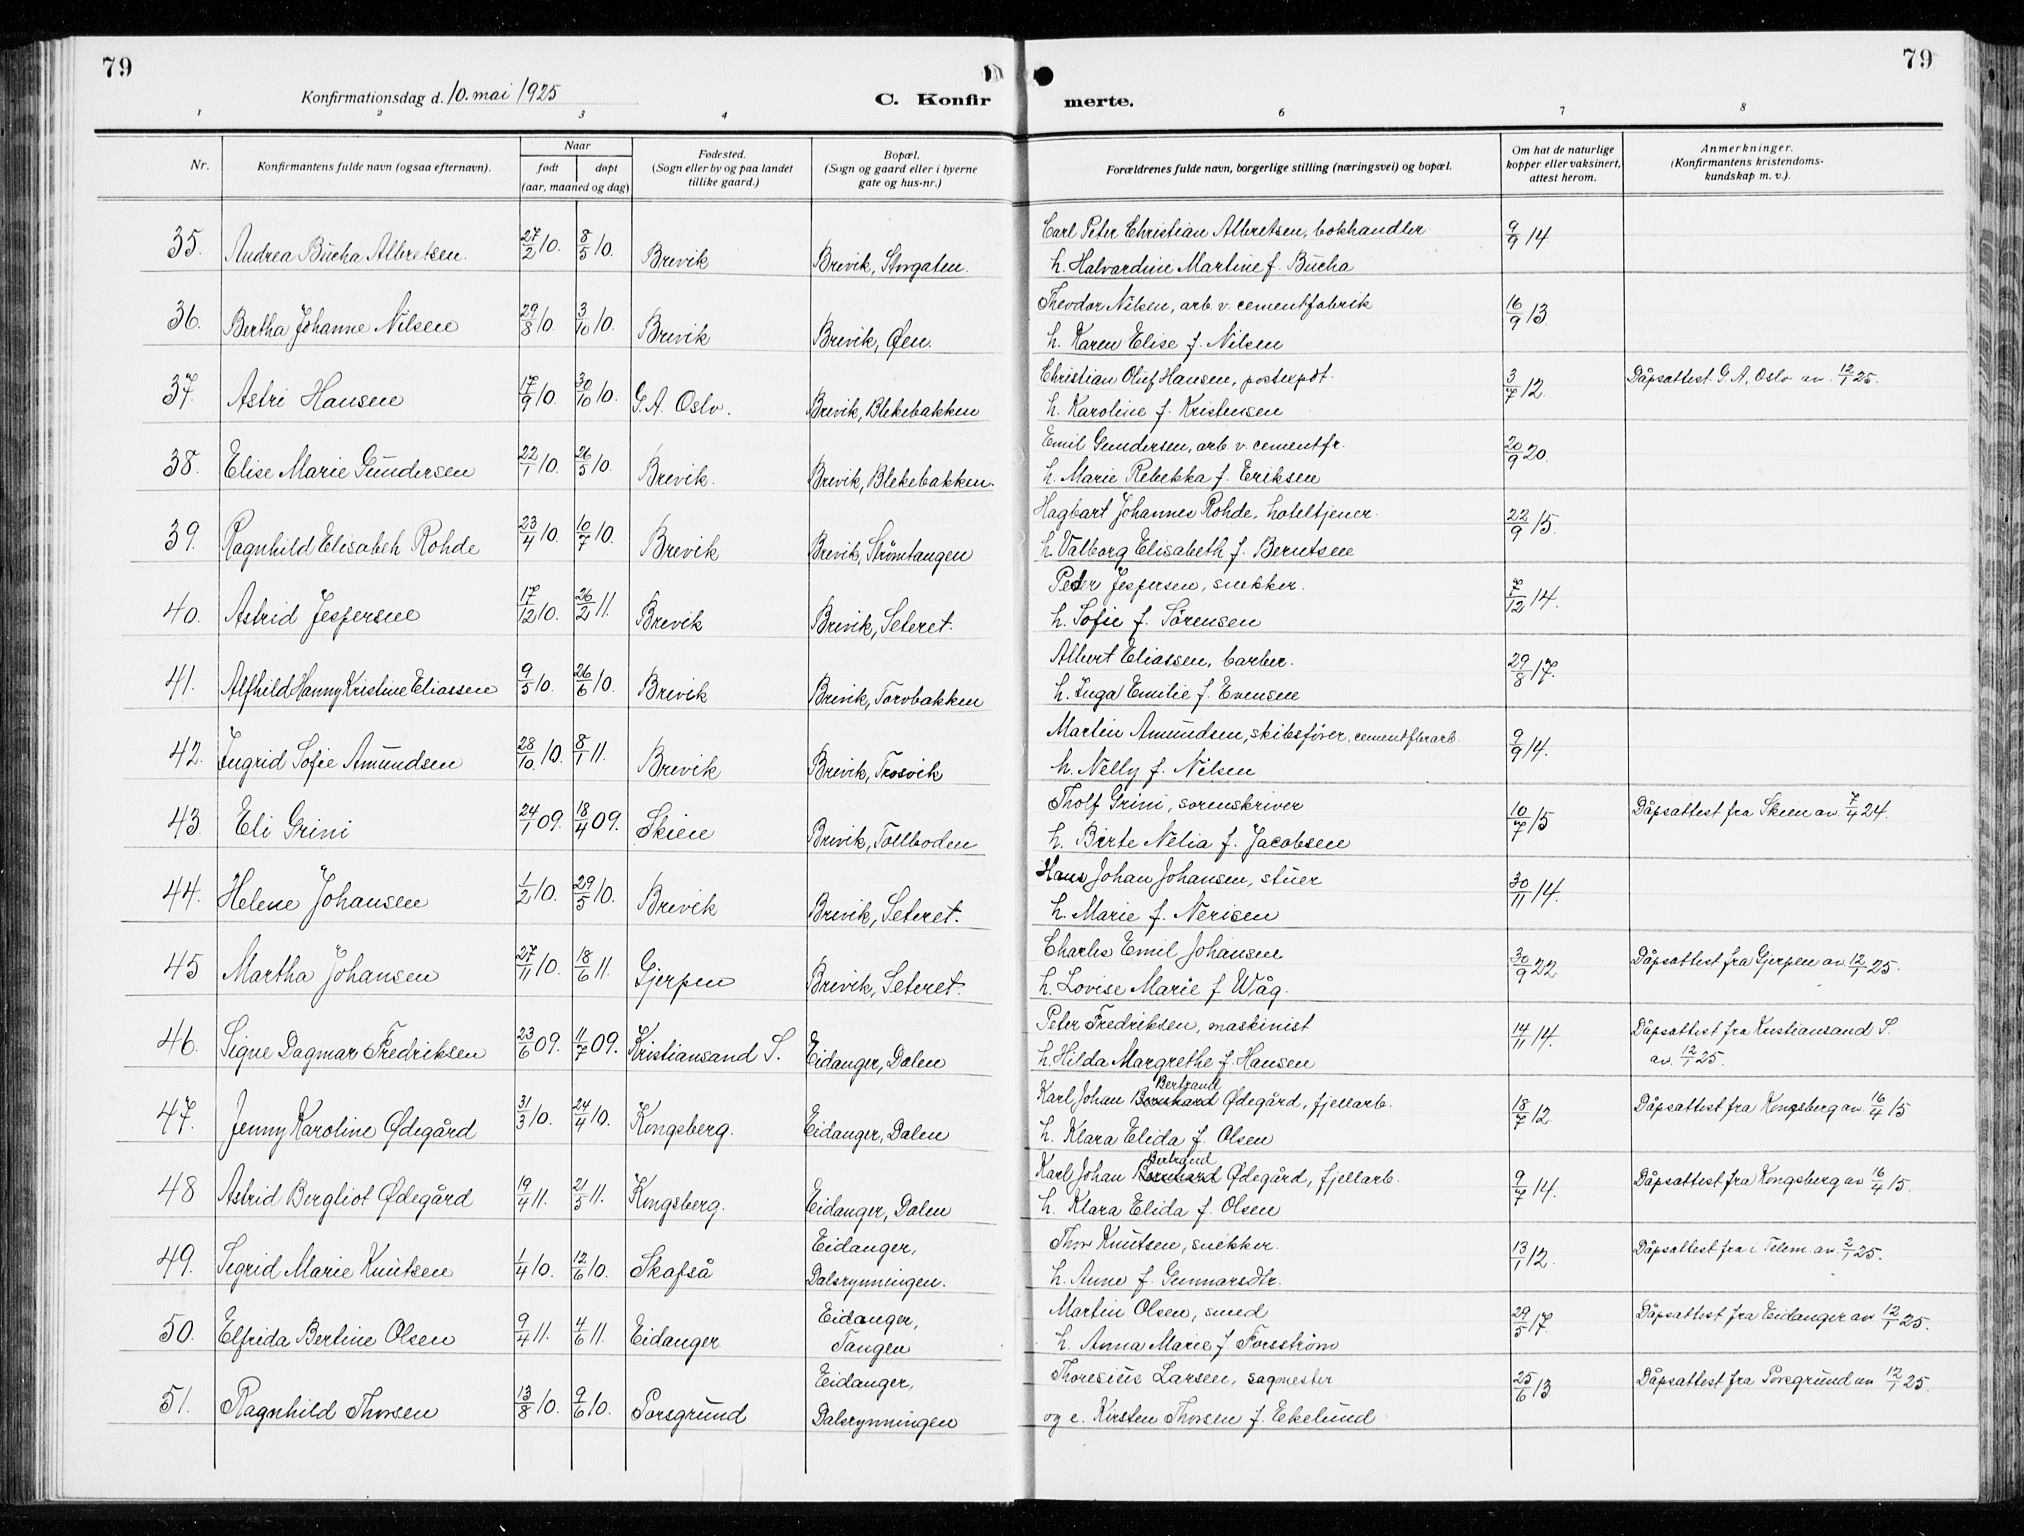 79
79
Konfirmationsdag d. 10. mai 1925
C. Konfir
merte.
1 2 3 4 6 7 8
Nr.
Konfirmantens fulde navn (ogsaa efternavn).
Naar
født døpt
(aar, maaned og dag)
Fødested.
(Sogn eller by og paa landet
tillike gaard.)
Bopæl.
(Sogn og gaard eller i byerne
gate og hus-nr.)
Forældrenes fulde navn, borgerlige stilling (næringsvei) og bopæl.
Om hat de naturlige
kopper eller vaksinert,
attest herom.
Anmerkninger.
(Konfirmantens kristendoms-
kundskap m. v.).
35. Andrea Bucha Albretsen. 27/2 10. 8/5 10. Brevik Brevik, Storgaten. Carl Peter Christian Albretsen, bokhandler 9/9 14
h. Halvardine Martine f. Bucha
36. Bertha Johanne Nilsen 29/8 10. 3/10 10. Brevik Brevik, Øen. Theodor Nilsen, arb. v. cementfabrik 16/9 13
h. Karen Elise f. Nilsen
37. Astri Hansen 17/9 10. 30/10 10. G. A. Oslo. Brevik, Blekebakken Christian Oluf Hansen, postexpdt. 3/7 12. Dåpsattest G. A, Oslo av. 12/1 25.
h. Karoline f. Kristensen
38. Elise Marie Gundersen 22/1 10. 26/5 10. Brevik. Brevik, Blekebakken. Emil Gundersen, arb. v. cementfr. 20/9 20.
h. Marie Rebekka f. Eriksen
39. Ragnhild Elisabeh Rohde 23/4 10. 10/7 10. Brevik Brevik, Strømtangen Hagbart Johannes Rohde, hoteltjener. 22/9 15.
h. Valborg Elisabeth f. Berntsen
40. Astrid Jespersen 17/12 10. 26/2 11. Brevik Brevik, Seteret. Peder Jespersen, snekker. 7/12 14.
h. Sofie f. Sørensen
41. Alfhild Hanny Kristine Eliassen 9/5 10. 26/6 10. Brevik Brevik, Torvbakken Albert Eliassen, barber. 29/8 17.
h. Inga Emilie f. Evensen
42. Ingrid Sofie Amundsen 28/10. 10. 8/1 11. Brevik Brevik, Trosvik Martin Amundsen, skibsfører, cementfbrarb. 9/9 14.
h. Nelly f. Nilsen
43. Eli Grini 24/1 09. 18/4 09. Skien Brevik, Tollboden Tholf Grini, sorenskriver 10/7 15 Dåpsattest fra Skien av. 7/4 24.
h. Birte Nelia f. Jacobsen
44. Helene Johansen 1/2 10. 29/5 10. Brevik Brevik, Seteret. Hans Johan Johansen, stuer 30/11 14.
h. Marie f. Nerisen
45 Martha Johansen 27/11 10. 18/6 11. Gjerpen Brevik, Seteret. Charles Emil Johansen 30/9 22 Dåpsattest fra Gjerpen av. 12/1 25.
h. Lovise Marie f Wåg.
46. Signe Dagmar Fredriksen 23/6 09. 11/7 09. Kristiansand S. Eidanger, Dalen Peter Fredriksen, maskinist 14/11 14. Dåpsattest fra Kristiansand S.
h. Hilda Margrethe f. Hansen av. 12/1 25.
Bertrand
47. Jenny Karoline Ødegård 31/3 10. 24/4 10. Kongsberg. Eidanger, Dalen Karl Johan Bernhard Ødegård, fjellarb. 18/7 12 Dåpsattest fra Kongsberg av. 16/4 15
h. Klara Elida f. Olsen
Bertrand
48 Astrid Bergliot Ødegård 19/4 11. 21/5 11. Kongsberg. Eidanger, Dalen Karl Johan Bernhard Ødegård, fjellarb. 9/7 14. Dåpsattest fra Kongsberg av 16/4 15.
h. Klara Elida f. Olsen
49. Sigrid Marie Knutsen 1/4 10. 12/6 10. Skafså Eidanger, Dalsrynningen. Thor Knutsen, snekker. 13/1 12. Dåpsattest fra i Telem. av. 2/1 25.
h. Anne f. Gunnarsdtr.
50. Elfrida Bertine Olsen 9/4 11. 4/6 11. Eidanger Eidanger, Tangen Martin Olsen, smed 29/5 17. Dåpsattest fra Eidanger av. 12/1 25.
h. Anna Marie f. Forsström
51. Ragnhild Thorsen 13/8 10. 9/6 10. Porsgrund Eidanger, Dalsrynningen Thoresius Larsen, sagmester 25/6 13 Dåpsattest fra Porsgrund av 12/1 25.
og e. Kirsten Thorsen f. Ekelund